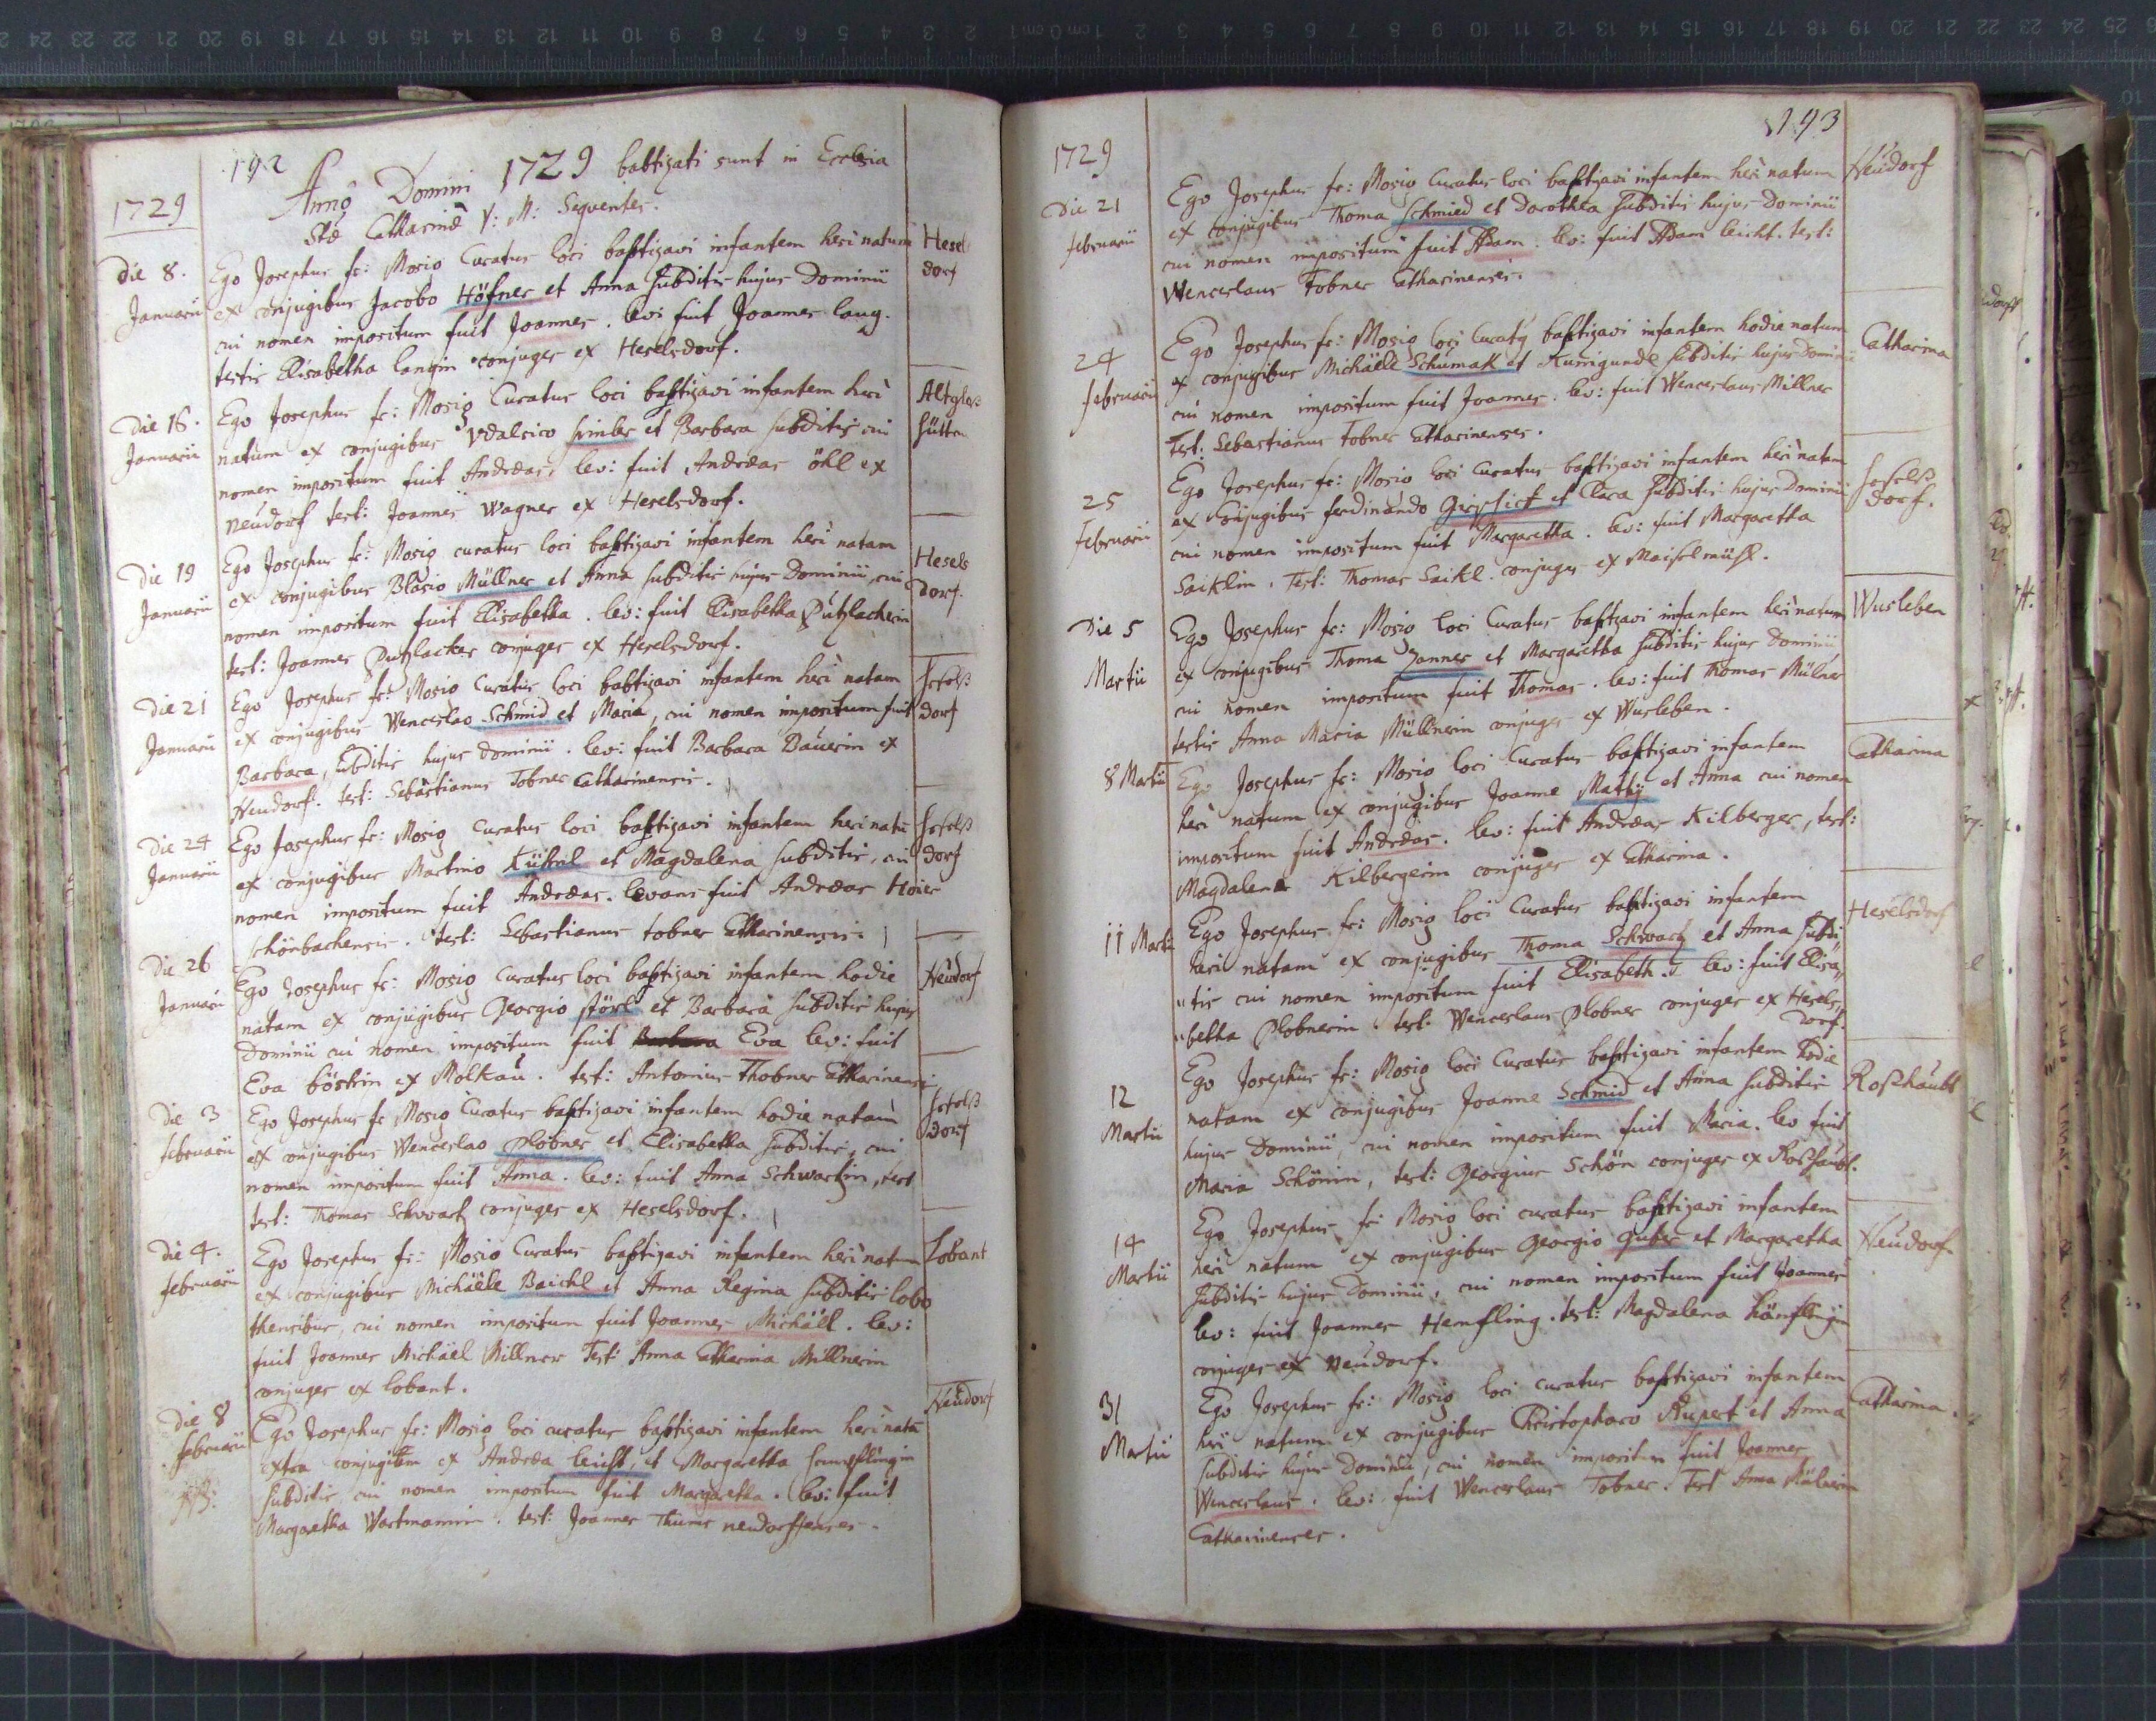 192
Anno Domini 1729 babtizati sunt in Ecclesia
Stae Catharinae V: M: Sequentes.
1729
Die 8. Januarii
Ego Josephus fr: Mosig Curatus loci babtizavi infantem heri natum
ex conjugibus Jacobo Höfner et Anna subditis hujus Dominii
cui nomen impositum fuit Joannes. levs fuit Joannes lang.
testis Elisabetha langin conjuges ex Heselsdorf.
Hesels
dorf
Die 16. Januarii
Ego Josephus fr: Mosig Curatus loci babtizavi infantem heri
natum ex conjugibus Vdalrico et Barbara subditis cui
nomen impositum fuit Andreas, lev: fuit Andreas öhl ex
Neudorf test: Joannes Wagner ex Heselsdorf.
Altglas
hütten
Die 19 Januarii
Ego Josephus fr: Mosig curatus loci babtizavi infantem heri natam
ex conjugibus Blasio Müllner et Anna subditis hujus Dominii, cui
nomen impositum fuit Elisabetha. lev: fuit Elisabetha Putzlacherin
test: Joannes Putzlacker conjuges ex Heselsdorf.
Hesels
dorf.
Die 21 Januarii
Ego Josephus fr: Mosig Curatus loci babtizavi infantem heri natam
ex conjugibus Wenceslao Schmid et Maria, cui nomen impositum fuit
Barbara, subditis hujus dominii. lev: fuit Barbara Bauerin ex
Neudorf. test: Sebastianus Tobner Catharinensis.
Heselß
dorf
Die 24 Januarii
Ego Josephus fr: Mosig Curatus loci babtizavi infantem heri natū
ex conjugibus Martino Kühnl et Magdalena subditis, cui
nomen impositum fuit Andreas. levans fuit Andreas Hoier
schönbachensis. test: Sebastianus tobner Catharinensis.
Heselß
dorf
Die 26 Januarii
Ego Josephus fr: Mosig Curatus loci babtizavi infantem hodie
natam ex conjugibus Georgio störl et Barbara subditis hujus
Dominii cui nomen impositum fuit Barbara Eva lev: fuit
Eva böshin ex Molkau. test: Antonius Thobner Catharinensis
Neudorf
Die 3 februarii
Ego Josephus fr Mosig Curatus babtizavi infantem hodie natam
ex conjugibus Wenceslao plobner et Elisabetha subditis, cui
nomen impositum fuit Anna. lev: fuit Anna Schwartzin, test
test: Thomas Schwartz conjuges ex Heselsdorf.
Heselß
dorf
Die 4. februarii
Ego Josephus fr: Mosig Curatus babtizavi infantem heri natum
ex conjugibus Michäele Baichl et Anna Regina subditis lobo
thensibus, cui nomen impositum fuit Joannes Michäel. lev:
fuit Joannes Michael Millner Test: Anna Catharina Millnerin
conjuges ex lobant.
Lobant
Die 8 februarii
Ego Josephus fr: Mosig loci curatus babtizavi infantem heri natā
extra conjugium ex Andrea leicht, et Margaretha
subditis cui nomen impositum fuit Margaretha. lev: fuit
Margaretha Wartmannin. test: Joannes Thums neudorffenses.
Neudorf
193
1729
Die 21 februarii
Ego Josephus fr: Mosig Curatus loci babtizavi infantem heri natum
ex conjugibus Thoma schmied et Dorothea subditis hujus Dominii
cui nomen impositum fuit Adam. lev: fuit Adam leicht. test:
Wenceslaus Tobner Catharinensis.
Neudorf
24 februarii
Ego Josephus fr: Mosig loci Curatg babtizavi infantem hodie natum
ex conjugibus Michäele Schumak et Kunigunde subditis hujus Dominii
cui nomen impositum fuit Joannes. lev: fuit Wenceslaus Millner
Test: Sebastianus Tobner Catharinenses.
Catharina
25 februarii
Ego Josephus fr: Mosig loci Curatus babtizavi infantem heri natam
ex conjugibus ferdinando Girschick et Clara subditis hujus Dominii
cui nomen impositum fuit Margaretha. lev: fuit Margaretha
Saiklin. Test: Thomas Saikl. conjuges ex Maislmühl.
Heselß
dorf.
Die 5 Martii
Ego Josephus fr: Mosig loci Curatus babtizavi infantem heri natum
ex conjugibus Thoma Zanner et Margaretha subditis hujus Dominii,
cui nomen impositum fuit Thomas. lev: fuit Thomas Mülner
testis Anna Maria Müllnerin conjuges ex Wusleben.
Wusleben
8 Martii
Ego Josephus fr: Mosig loci Curatus babtizavi infantem
heri natum ex conjugibus Joanne Mathy et Anna cui nomen
impositum fuit Andreas. lev: fuit Andreas Kilberger, test:
Magdalena Kilbergerin conjuges ex Catharina.
Catharina
11 Martii
Ego Josephus fr: Mosig loci Curatus babtizavi infantem
heri natam ex conjugibus Thoma Schwartz et Anna subdi„
„tis cui nomen impositum fuit Elisabeth. lev: fuit Elisa„
„betha Plobnerin. test: Wenceslaus Plobner conjuges ex Hesels„
dorf.
Heselsdorf
12 Martii
Ego Josephus fr: Mosig loci Curatus babtizavi infantem hodie
natam ex conjugibus Joanne Schmid et Anna subditis
hujus Dominii, cui nomen impositum fuit Maria. lev fuit
Maria Schönin, test: Georgius Schön conjuges ex Roßhaubt.
Roßhaubt
14 Martii
Ego Josephus fr: Mosig loci curatus babtizavi infantem
heri natum ex conjugibus Georgio Huber et Margaretha
subditis hujus Dominii, cui nomen impositum fuit Joannes
lev: fuit Joannes Hemfling. test: Magdalena hänflingin
conjuges ex Neudorf.
Neudorf
31 Martii
Ego Josephus fr: Mosig loci curatus babtizavi infantem
heri natum ex conjugibus Christophoro Rupert et Anna
subditis hujus Dominii, cui nomen impositum fuit Joannes
Wenceslaus. lev: fuit Wenceslaus Tobner. Test Anna Mülnerin
Catharinenses.
Catharina.